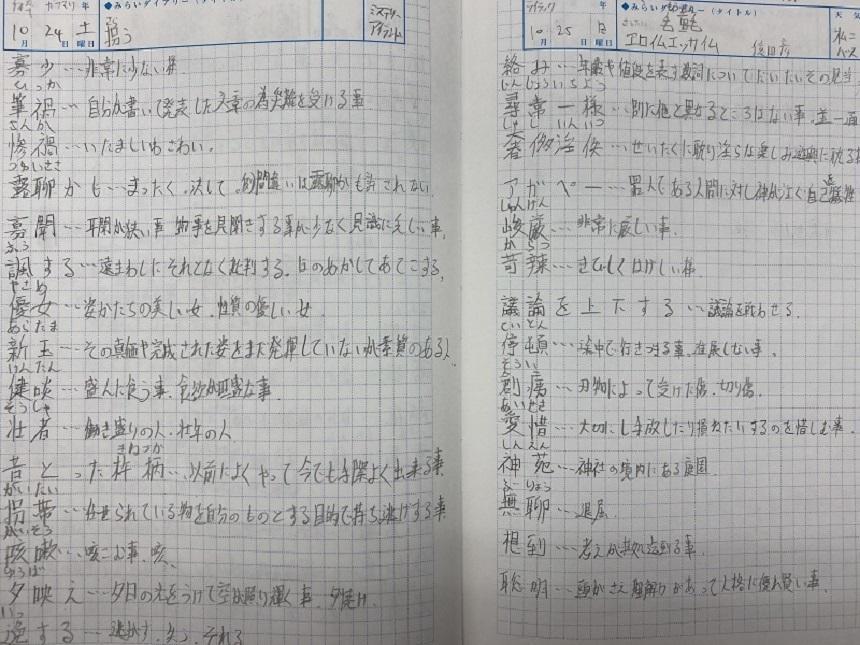 10月 24日 土曜日
●みらいダイアリー(タイトル)
ミステリー
寡少…非常に少ない様
ひっか
筆禍…自分が書いて発表した文章の為災難を受ける事
さんか
惨禍…いたましいわざわい。
つゆいささ
露聊かも…まったく、決して。的間違いは露聊かも許されない
寡聞…平聞が狭い事 物事を見聞きする事が少なく見識に乏しい事
ふう
諷する…遠まわしにそれとなく批判する。ほのめかしてあてこする。
やさめ
優女…姿かたちの美しい女、性質の優しい女
あらたま
新玉…その真価や完成された姿をまだ発揮していないが素質のある人
けんたん
健啖…盛んに食う事、食欲が旺盛な事
そうしゃ
壮者…働き盛りの人、壮年の人
きねづか
昔とった杵柄…以前によくやって今でも手際よく出来る事
かいたい
拐帯…任せられている物を自分のものとする目的で持ち逃げする事
がいそう
咳嗽…咳こむ事、咳、
ゆうば
夕映え…夕日の光をうけて空が照り輝く事、夕焼け
いっ
逸する…逃がす、失う、それる
10月 25日 日曜日
●みらいダイアリー(タイトル)
エロイムエッサイム
絡み…年齢や値段を表す数詞についてだいたいその見当
じんじょういちよう
尋常一様…別に他と異なるところはない事、並一通
しゃしいんいつ
奢侈淫佚…ぜいたくに耽り淫らな楽しみ遊興に耽る
アガペー…罪人である人間に対し神がなく自己犠牲
しゅんげん
峻厳…非常に厳しい事
からつ
苛辣…きびしくはげしい様
議論を上下する…議論を戦わせる。
ていとん
停頓…途中で行きづまる事、進展しない事。
そうい
創痍…刃物によって受けた傷、切り傷
あいせき
愛惜…大切にし手放したり損ねたりするのを惜しむ事。
しんえん
神苑…神社の境内にある庭園
ぶりょう
無聊…退屈
想到…考えが其処に至る事
聡明…頭がさえ理解力があって人格に優れ賢い事。